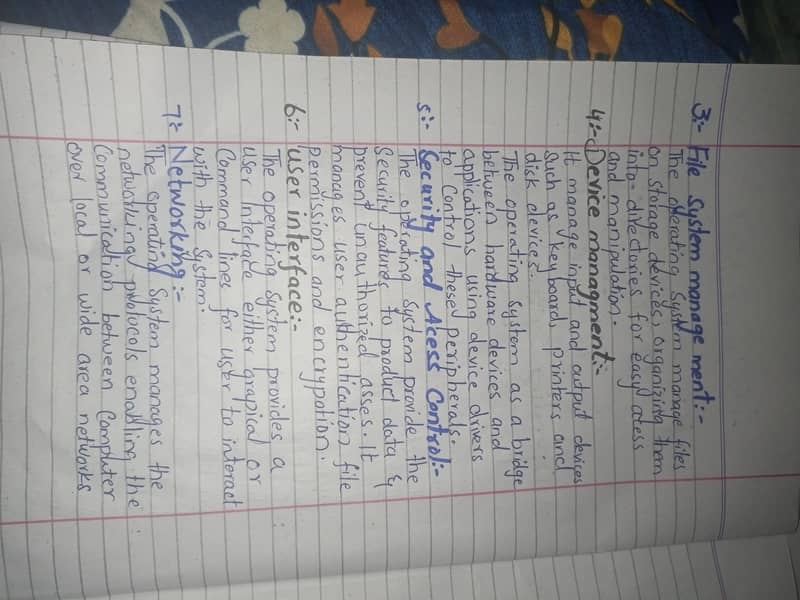 3:- File system manage ment:-
The operating system manage files
on storage devices, organizing them
into directories for easy acess
and manipulation.
4:- Device managment:-
It manage input and output devices
such as keyboard, printers and
disk devices.
The operating system as a bridge
between hardware devices and
applications using device drivers
to control these peripherals.
5:- Security and Acess Control:-
The operating system provide the
Security features to product data &
prevent unauthorized asses. It
manages user authentication file
permissions and encryption.
6:- User interface:-
The operating system provides a
user Interface either grapical or
Command lines for user to interact
with the system.
7:- Networking:-
The operating system manages the
networking protocols enabling the
Communication between Computer
over local or wide area networks